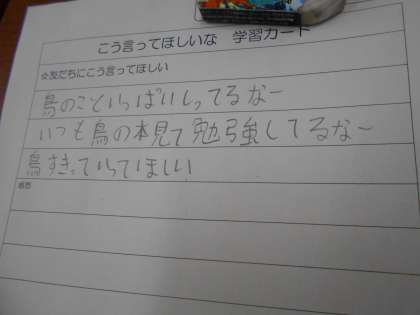 こう言ってほしいな 学習カード
☆友だちにこう言ってほしい
鳥のこといっぱいしってるなー
いつも鳥の本見て勉強してるなー
鳥すきっていってほしい
感想